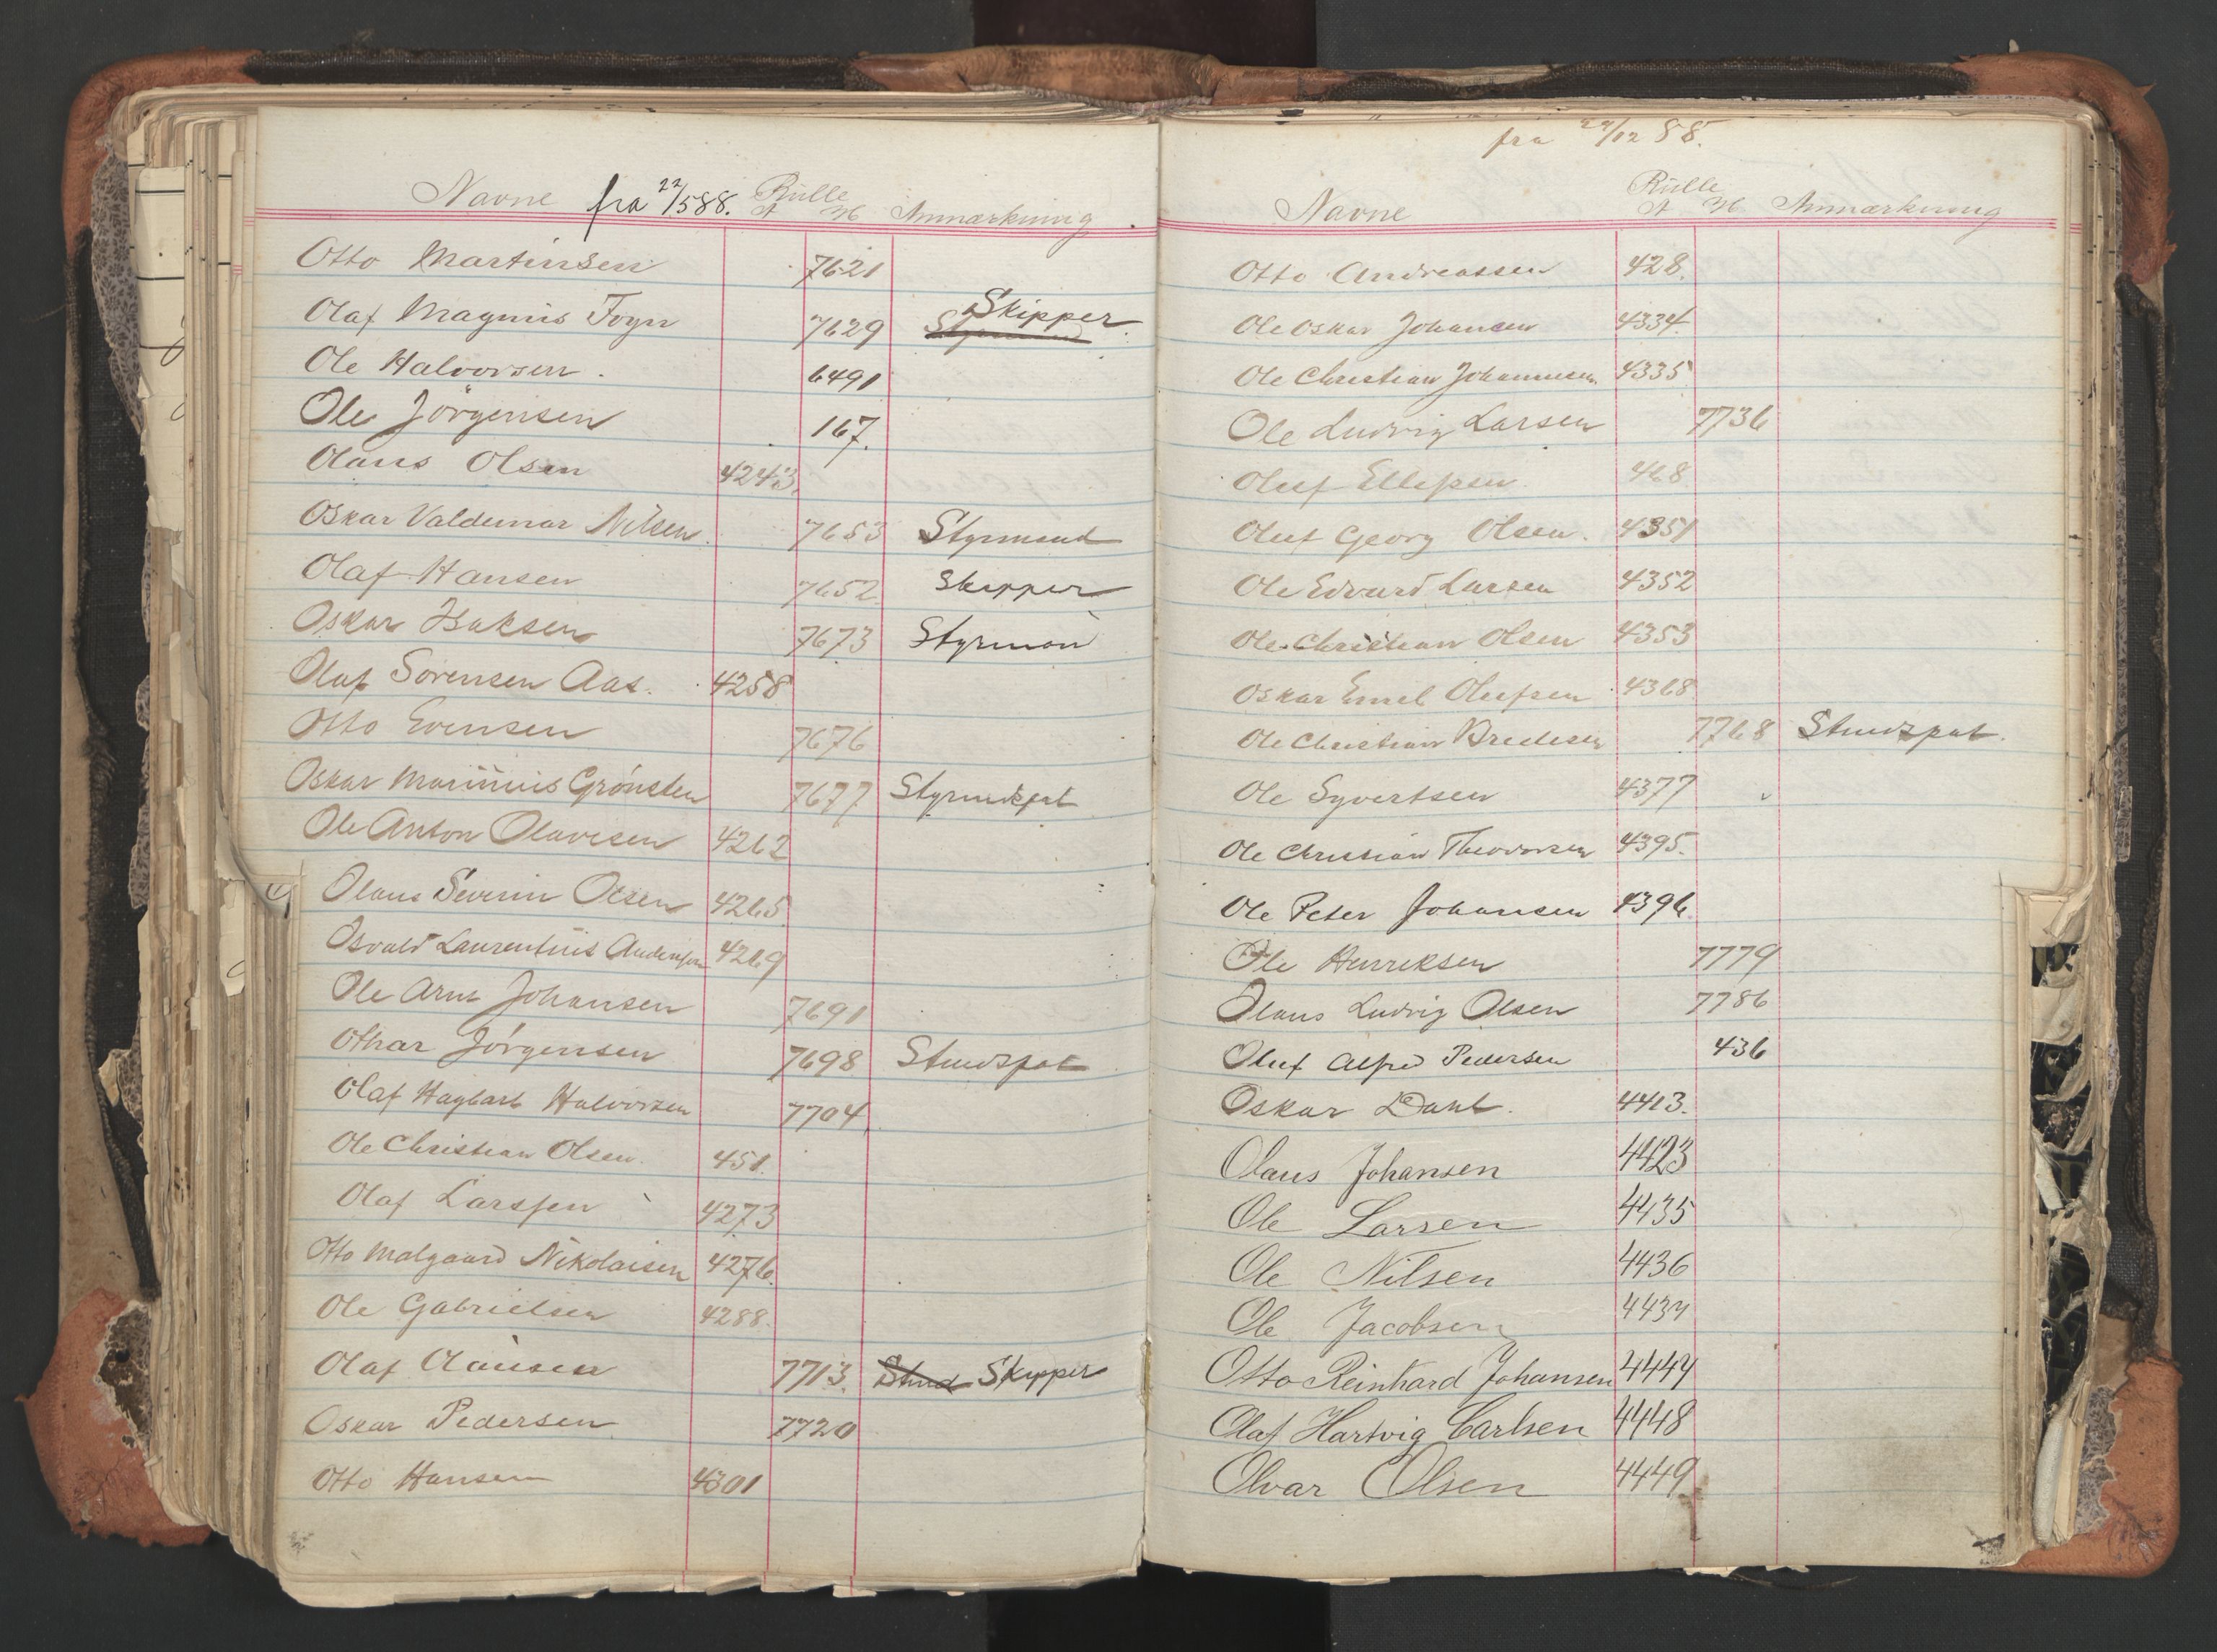 Navne fra 22/5 88. Rulle Anmærkning
A
Otto Martinsen 7621
Olaf Magnus Foyn 7629 Skipper
Ole Halvorsen. 6491
Ole Jörgensen 167.
Olaus Olsen 4243.
Oskar Valdemar Nilsen. 7653 Styrmand
Olaf Hansen 7652. Skipper
Oskar Isaksen 7673 Styrman
Olaf Sørensen Aas. 4258
Otto Evensen 7676
Oskar Marinius Grönsten 7677 Styrmdspat
Ole Anton Olavesen 4262
Olaus Severin Olsen 4265
Osvald Laurentius Andersen 4269
Ole Arnt Johansen 7691
Othar Jörgensen 7698 Stmdspat
Olaf Hagbart Halvorsen 7704
Ole Christian Olsen. 451.
Olaf Larssen 4273
Otto Malgaard Nikolaisen 4276.
Ole Gabrielsen 4288.
Olaf Clausen 7713. Stmd Skipper
Oskar Pedersen 7720
Otto Hansen 4301
fra 24/12 88.
Navne Rulle Anmærkning
A
Otto Andreassen 428.
Ole Oskar Johansen 4334.
Ole Christian Johannesen. 4335
Ole Ludvig Larsen 7736
Oluf Ellefsen 468
Oluf Georg Olsen. 4351
Ole Edvard Larsen 4352
Ole Christian Olsen 4353
Oskar Emil Olufsen 4368
Ole Christian Bredesen 7768 Stmdspat.
Ole Syvertsen 4377
Ole Christian Theodorsen 4395.
Ole Peter Johansen 4396.
Ole Henreksen 7779
Olaus Ludvig Olsen 7786
Oluf Alfred Pedersen 436
Oskar Dahl. 4413.
Olaus Johansen 4423
Ole Larsen 4435
Ole Nilsen 4436
Ole Jacobsen 4437
Otto Reinhard Johansen 4447
Olaf Hartvig Carlsen 4448
Olvar Olsen 4449